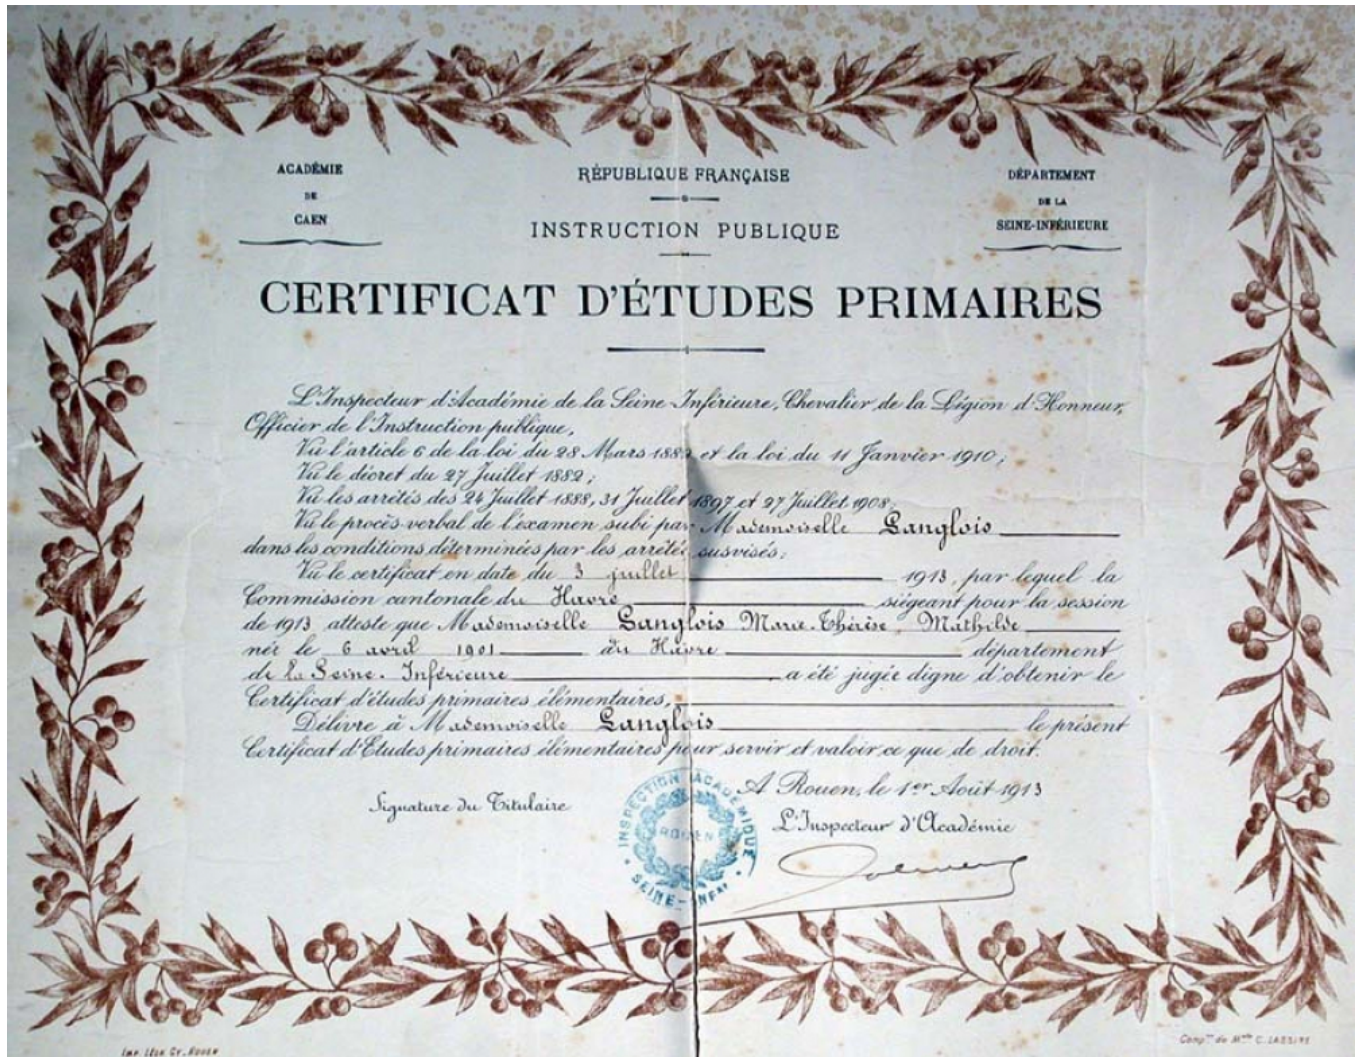 ACADÉMIE
DE
CAEN
RÉPUBLIQUE FRANÇAISE
INSTRUCTION PUBLIQUE
DÉPARTEMENT
DE LA
SEINE-INFÉRIEURE
CERTIFICAT D'ÉTUDES PRIMAIRES
L'Inspecteur d'Académie de la Seine Inférieure, Chevalier de la Légion d'Honneur,
Officier de l'Instruction publique,
Vu l'article 6 de la loi du 28 Mars 1882 et la loi du 11 Janvier 1910;
Vu le décret du 27 Juillet 1882;
Vu les arrêtés des 24 Juillet 1888, 31 Juillet 1897 et 27 Juillet 1908;
Vu le procès-verbal de l'examen subi par Mademoiselle Langlois
dans les conditions déterminées par les arrêtés susvisés;
Vu le certificat en date du 3 juillet 1913, par lequel la
Commission cantonale du Havre siégeant pour la session
de 1913 atteste que Mademoiselle Langlois Marie-Thérèse Mathilde
née le 6 avril 1901 au Havre département
de la Seine-Inférieure a été jugée digne d'obtenir le
Certificat d'études primaires élémentaires,
Délivre à Mademoiselle Langlois le présent
Certificat d'Etudes primaires élémentaires pour servir et valoir ce que de droit.
A Rouen, le 1er Août 1913
Signature du Titulaire
L'Inspecteur d'Académie
INSPECTION ACADÉMIQUE
ROUEN
SEINE-INFRE
IMP. LÉON GY. ROUEN